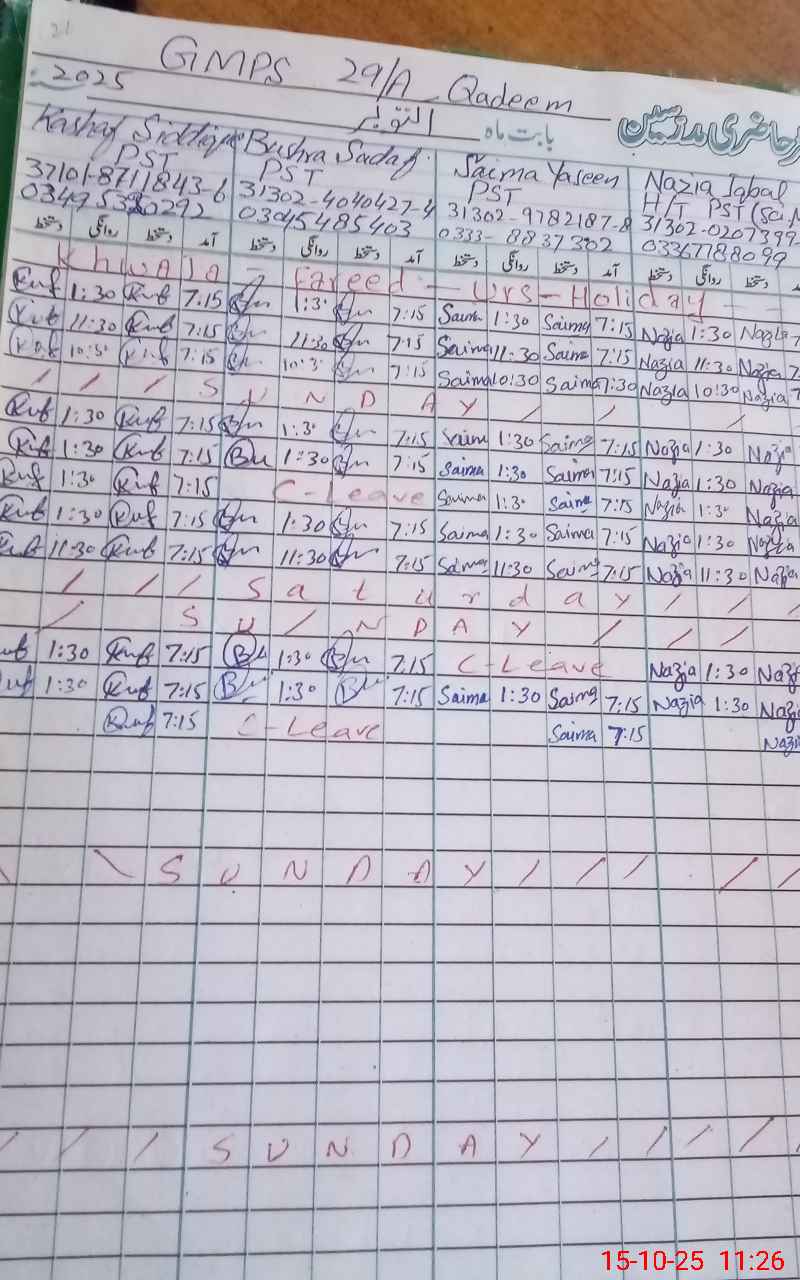 21
GMPS 29/A Qadeem
2025 اکتوبر بابت ماہ حاضری مدرسین
Kashaf Siddique Bushra Sadaf Saima Yaseen Nazia Iqbal
PST PST PST H/T PST (Sci.
37101-8711843-6 31302-4040427-4 31302-9782187-8 31302-0207399-
03045485403 0333-8837302 03367788099
دستخط روانگی دستخط آمد دستخط روانگی دستخط آمد دستخط روانگی دستخط آمد دستخط روانگی دستخط
Khwaja - Fareed - Urs - Holiday - -
1:30 7:15 1:30 7:15 Saima 1:30 Saima 7:15 Nazia 1:30 Nazia 7
11:30 7:15 11:30 7:15 Saima 11:30 Saima 7:15 Nazia 11:30 Nazia 7
10:30 7:15 10:30 7:15 Saima 10:30 Saima 7:30 Nazia 10:30 Nazia 7
/ / / S U N D A Y / / /
1:30 7:15 1:30 7:15 Saima 1:30 Saima 7:15 Nazia 1:30 Nazia
1:30 7:15 Bu 1:30 7:15 Saima 1:30 Saima 7:15 Nazia 1:30 Nazia
1:30 7:15 C-Leave Saima 1:30 Saima 7:15 Nazia 1:30 Nazia
1:30 7:15 1:30 7:15 Saima 1:30 Saima 7:15 Nazia 1:30 Nazia
11:30 7:15 11:30 7:15 Saima 11:30 Saima 7:15 Nazia 11:30 Nazia
/ / / S a t u r d a y / / /
/ S U / N D A Y / / /
1:30 7:15 Bu 1:30 7:15 C-Leave Nazia 1:30 Naz
1:30 7:15 Bu 1:30 Bu 7:15 Saima 1:30 Saima 7:15 Nazia 1:30 Nazia
7:15 C-Leave Saima 7:15 Nazia
\ \ S U N D A Y / / / / /
/ / / S U N D A Y / / / /
15-10-25 11:26